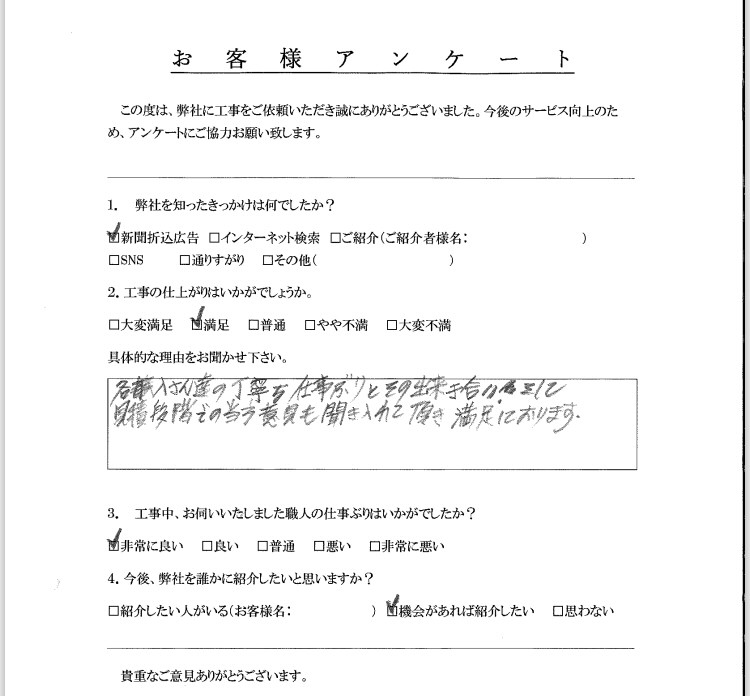 お客様アンケート
この度は、弊社に工事をご依頼いただき誠にありがとうございました。今後のサービス向上のた
め、アンケートにご協力お願い致します。
1. 弊社を知ったきっかけは何でしたか？
☑新聞折込広告 □インターネット検索 □ご紹介(ご紹介者様名: )
□SNS □通りすがり □その他( )
2. 工事の仕上がりはいかがでしょうか。
□大変満足 ☑満足 □普通 □やや不満 □大変不満
具体的な理由をお聞かせ下さい。
各職人さん達の丁寧な仕事ぶりとその出来具合
見積段階での当方意見も聞き入れて頂き満足しております。
3. 工事中、お伺いいたしました職人の仕事ぶりはいかがでしたか？
☑非常に良い □良い □普通 □悪い □非常に悪い
4. 今後、弊社を誰かに紹介したいと思いますか？
□紹介したい人がいる(お客様名: ) ☑機会があれば紹介したい □思わない
貴重なご意見ありがとうございます。